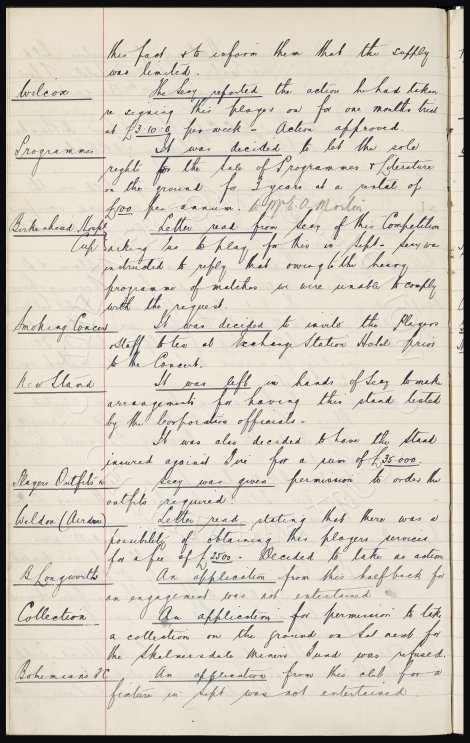 this fact & to inform them that the supply
was limited.
Wilcox The Secy reported the action he had taken
re signing this player on for one months trial
at £3.10.0 per week - Action approved.
Programmes It was decided to let the sole
rights for the sale of Programmes & Literature
on the ground for 3 years at a rental of
£100 per annum. to Mr E. A. Morton
Birkenhead Hospl Letter read from Secy of this Competition
Cup asking us to play for this in Sept - Secy was
instructed to reply that owing to the heavy
programme of matches we were unable to comply
with the request.
Smoking Concert It was decided to invite the Players
& Staff to tea at Exchange Station Hotel prior
to the Concert.
New Stand It was left in hands of Secy to make
arrangements for having this stand tested
by the Corporation officials.
It was also decided to have the Stand
insured against Fire for a sum of £35.000.
Players Outfits Secy was given permission to order the
outfits required
Weldon (Airdrie) Letter read stating that there was a
possibility of obtaining this players services
for a fee of £3500 - Decided to take no action
B Longworth An application from this half back for
an engagement was not entertained
Collection An application for permission to take
a collection on the ground on Sat next for
the Skelmersdale Miners Fund was refused.
Bohemians FC An application from this club for a
fixture in Sept was not entertained